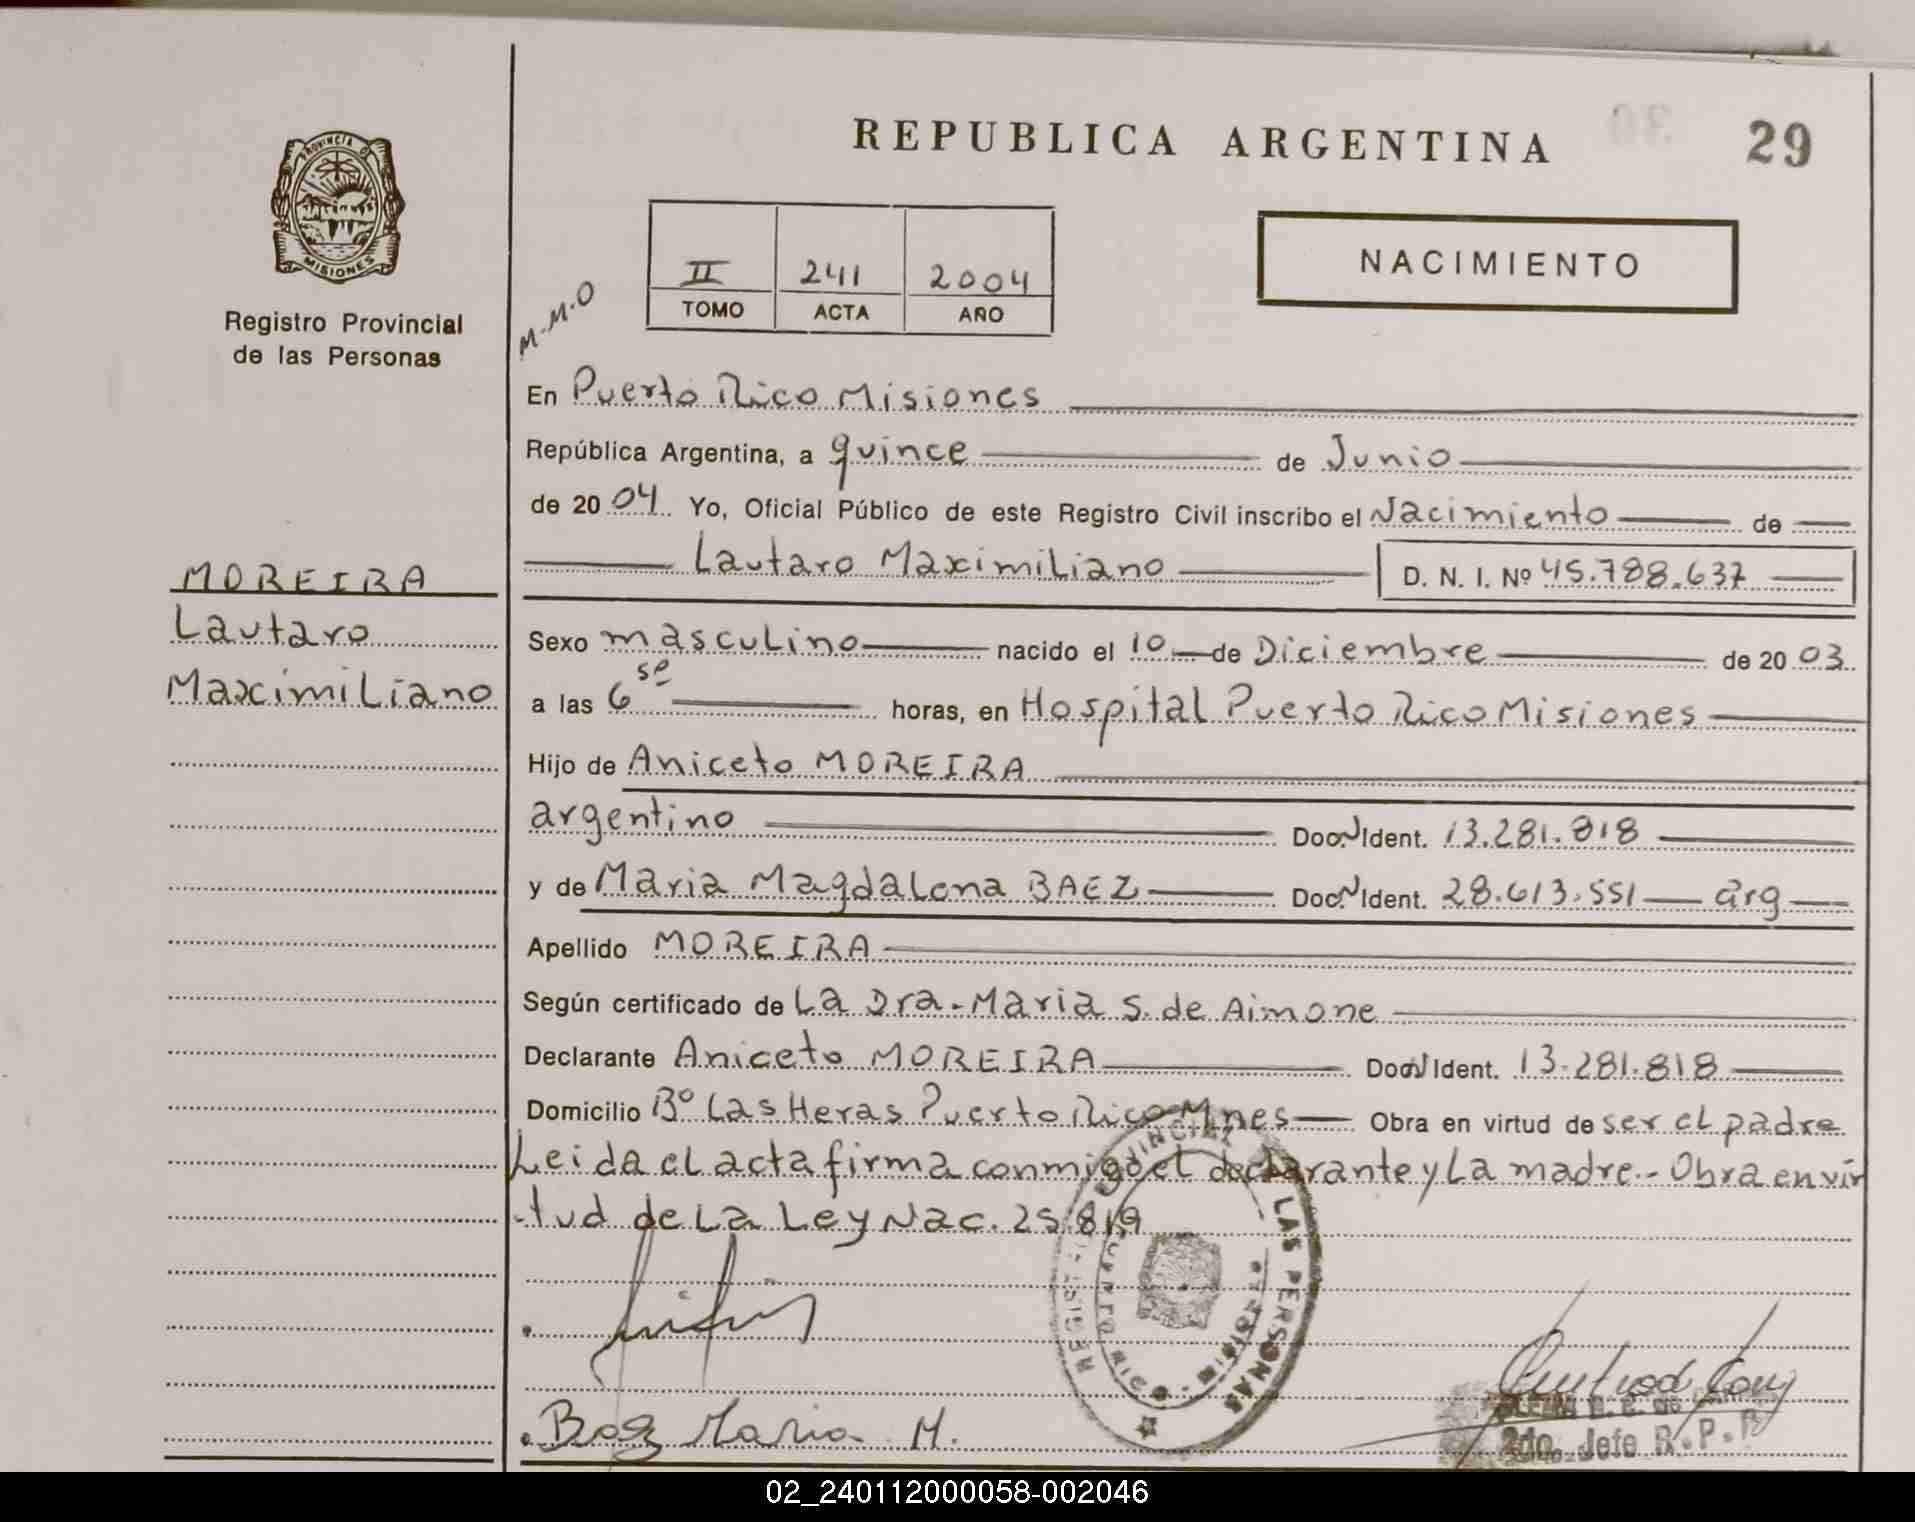 REPUBLICA ARGENTINA
29
PROVINCIA DE
MISIONES
Registro Provincial
de las Personas
M-M-O
II 241 2004
TOMO ACTA AÑO
NACIMIENTO
En Puerto Rico Misiones
República Argentina, a quince de Junio
de 2004 Yo, Oficial Público de este Registro Civil inscribo el Nacimiento de
Lautaro Maximiliano D. N. I. Nº 45.788.637
MOREIRA
Lautaro
Maximiliano
Sexo masculino nacido el 10 de Diciembre de 2003
a las 6 horas, en Hospital Puerto Rico Misiones
Hijo de Aniceto MOREIRA
argentino Doc. N Ident. 13.281.818
y de Maria Magdalena BAEZ Doc. N Ident. 28.613.551 arg
Apellido MOREIRA
Según certificado de La Dra. Maria S. de Aimone
Declarante Aniceto MOREIRA Doc. N Ident. 13.281.818
Domicilio Bº Las Heras Puerto Rico Mnes Obra en virtud de ser el padre
Leida el acta firma conmigo el declarante y La madre.- Obra en vir
-tud de La Ley Nac. 25.819
LAS PERSONAS
PUERTO RICO
Baez Maria M.
2do. Jefe R.P.P
02_240112000058-002046